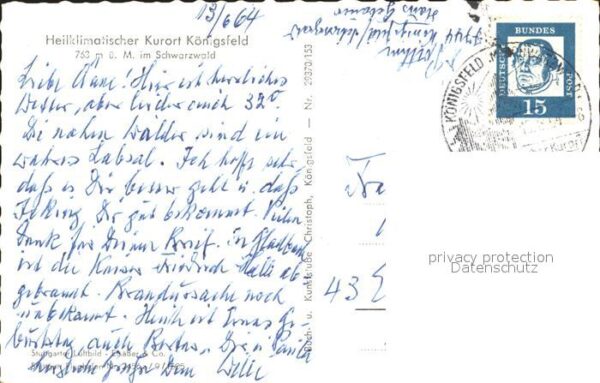 13/6 64
Heilklimatischer Kurort Königsfeld
763 m ü. M. im Schwarzwald
Liebe Änne! Hier ist herrliches
Wetter, aber leider auch 32°
Die nahen Wälder sind ein
wahres Labsal. Ich hoffe sehr
daß es Dir besser geht u. daß
Dir gut bekommt. Vielen
Dank für Deinen Brief. In Gladbach
ist die Kaiser Friedrich Halle ab
gebrannt. Brandursache noch
unbekannt. Heute ist Ge
burtstag, auch
herzliche Grüße Dein Willi
Stuttgarter Luftbild - Elsäßer & Co.
Buch- u. Kunststube Christoph, Königsfeld - Nr. 29370/153
Hans
7744 Königsfeld
DEUTSCHE
BUNDES
POST
15
KÖNIGSFELD
Kurort
43
privacy protection
Datenschutz